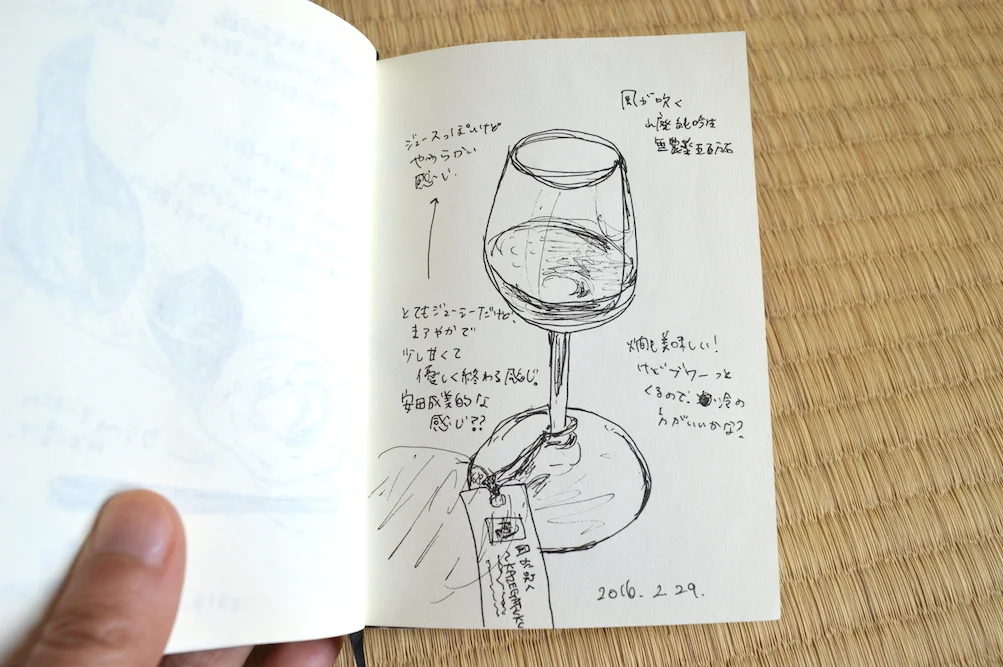 風が吹く
山廃純吟生
無農薬五百万石
ジュースっぽいけど
やわらかい
感じ.
とてもジューシーだけど、
まろやかで
少し甘くて
優しく終わる感じ。
安田成美的な
感じ??
燗も美味しい!
けどブワーっと
くるので、冷の
方がいいかな?
風が吹く
KAZEGAFUKU
2016. 2 29.